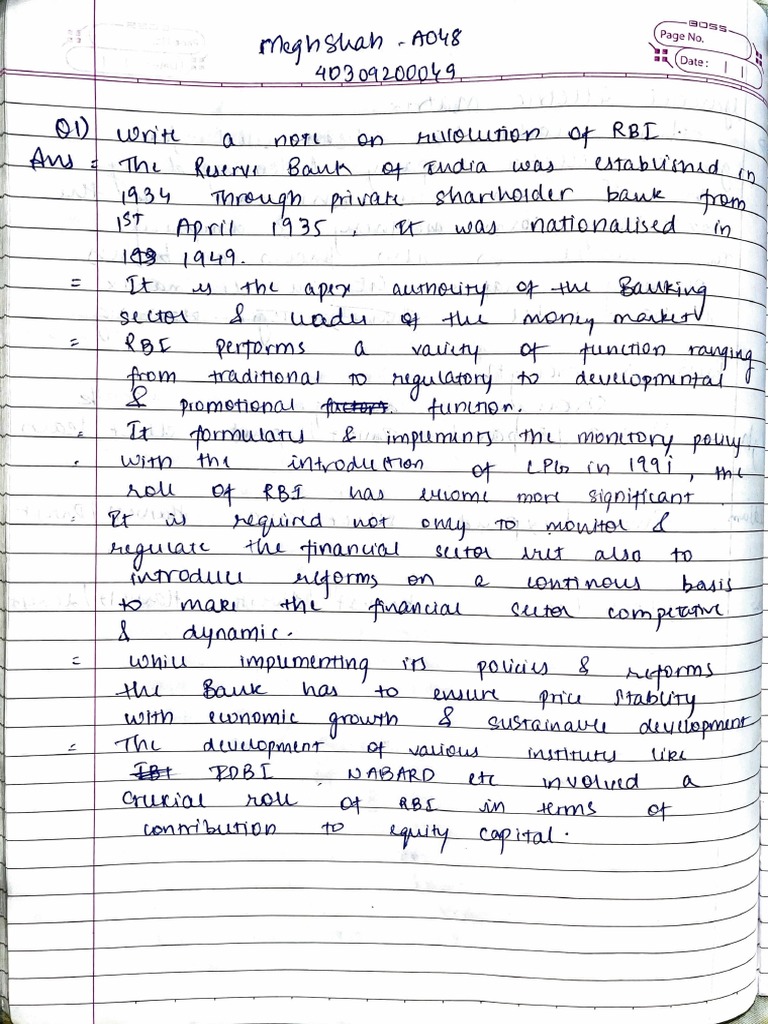 Megh Shah - A048
40309200049
BOSS
Page No.
Date:
Q1) Write a note on revolution of RBI.
Ans = The Reserve Bank of India was established in
1934 through private shareholder bank from
1ST April 1935. It was nationalised in
1949.
= It is the apex authority of the Banking
sector & leader of the money market
= RBI performs a variety of function ranging
from traditional to regulatory to developmental
& promotional factors function.
= It formulates & implements the monitory policy
. with the introduction of LPG in 1991, the
role of RBI has become more significant
It is required not only to monitor &
regulate the financial sector but also to
introduce reforms on a continous basis
to make the financial sector competative
& dynamic.
= While implementing its policies & reforms
the Bank has to ensure price stablity
with economic growth & sustainable development
= The development of various institutes like
IBI IDBI NABARD etc involved a
crucial role of RBI in terms of
contribution to equity capital.